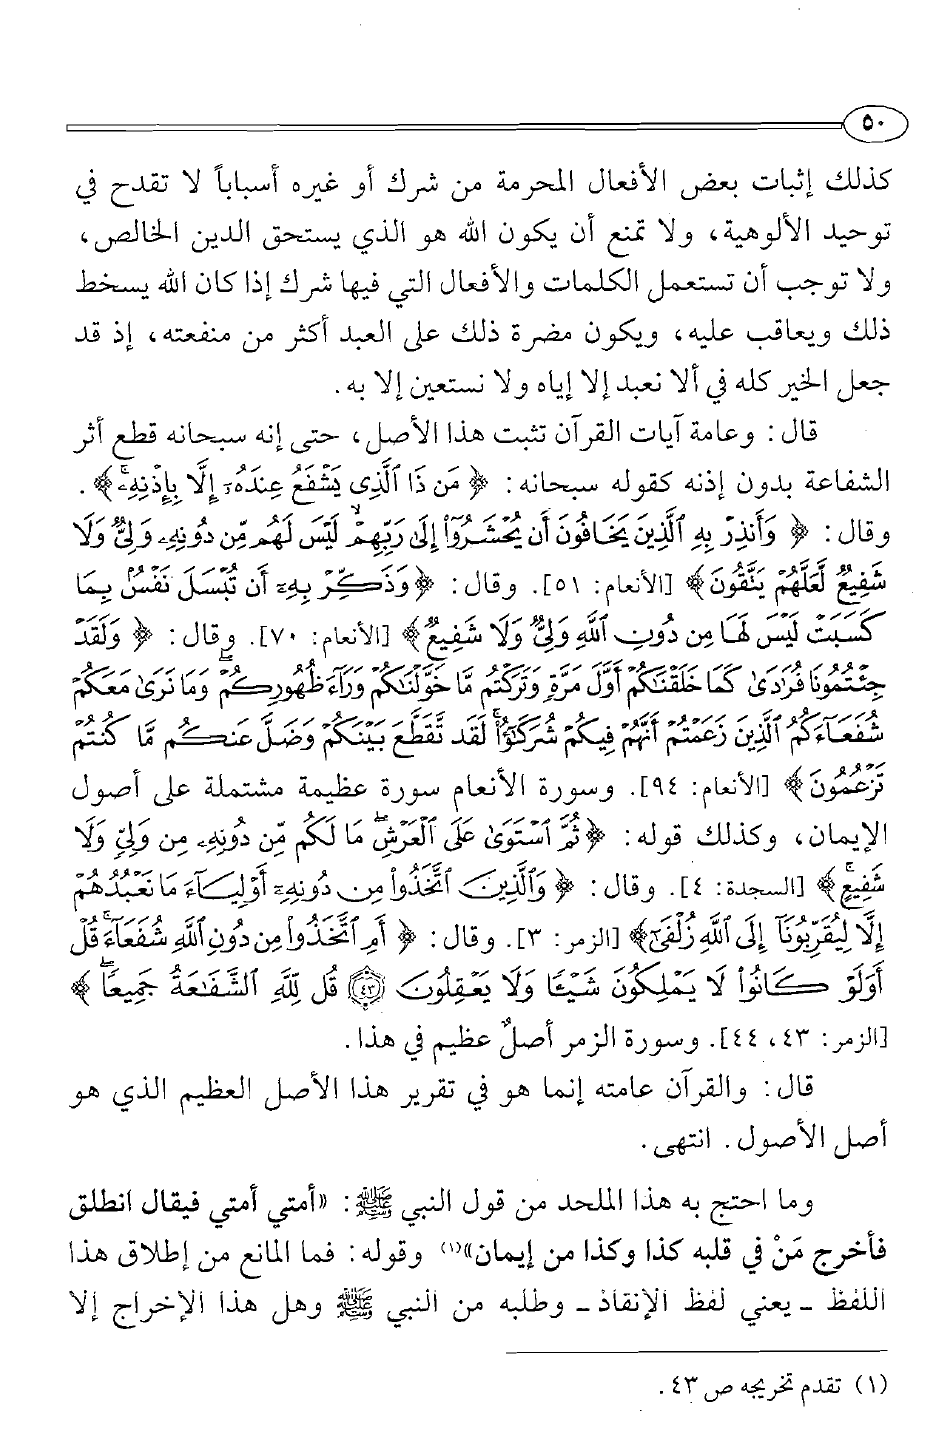 ٥٠
كذلك إثبات بعض الأفعال المحرمة من شرك أو غيره أسباباً لا تقدح في
توحيد الألوهية، ولا تمنع أن يكون الله هو الذي يستحق الدين الخالص،
ولا توجب أن تستعمل الكلمات والأفعال التي فيها شرك إذا كان الله يسخط
ذلك ويعاقب عليه، ويكون مضرة ذلك على العبد أكثر من منفعته، إذ قد
جعل الخير كله في ألا نعبد إلا إياه ولا نستعين إلا به.
قال: وعامة آيات القرآن تثبت هذا الأصل، حتى إنه سبحانه قطع أثر
الشفاعة بدون إذنه كقوله سبحانه: ﴿مَن ذَا ٱلَّذِى يَشْفَعُ عِندَهُۥٓ إِلَّا بِإِذْنِهِۦۚ﴾.
وقال: ﴿وَأَنذِرْ بِهِ ٱلَّذِينَ يَخَافُونَ أَن يُحْشَرُوٓا۟ إِلَىٰ رَبِّهِمْۙ لَيْسَ لَهُم مِّن دُونِهِۦ وَلِىٌّ وَلَا
شَفِيعٌ لَّعَلَّهُمْ يَتَّقُونَ﴾ [الأنعام: ٥١]. وقال: ﴿وَذَكِّرْ بِهِۦٓ أَن تُبْسَلَ نَفْسٌۢ بِمَا
كَسَبَتْ لَيْسَ لَهَا مِن دُونِ ٱللَّهِ وَلِىٌّ وَلَا شَفِيعٌ﴾ [الأنعام: ٧٠]. وقال: ﴿وَلَقَدْ
جِئْتُمُونَا فُرَٰدَىٰ كَمَا خَلَقْنَٰكُمْ أَوَّلَ مَرَّةٍ وَتَرَكْتُم مَّا خَوَّلْنَٰكُمْ وَرَآءَ ظُهُورِكُمْۖ وَمَا نَرَىٰ مَعَكُمْ
شُفَعَآءَكُمُ ٱلَّذِينَ زَعَمْتُمْ أَنَّهُمْ فِيكُمْ شُرَكَٰٓؤُا۟ۚ لَقَد تَّقَطَّعَ بَيْنَكُمْ وَضَلَّ عَنكُم مَّا كُنتُمْ
تَزْعُمُونَ﴾ [الأنعام: ٩٤]. وسورة الأنعام سورة عظيمة مشتملة على أصول
الإيمان، وكذلك قوله: ﴿ثُمَّ ٱسْتَوَىٰ عَلَى ٱلْعَرْشِۖ مَا لَكُم مِّن دُونِهِۦ مِن وَلِىٍّ وَلَا
شَفِيعٍۚ﴾ [السجدة: ٤]. وقال: ﴿وَٱلَّذِينَ ٱتَّخَذُوا۟ مِن دُونِهِۦٓ أَوْلِيَآءَ مَا نَعْبُدُهُمْ
إِلَّا لِيُقَرِّبُونَآ إِلَى ٱللَّهِ زُلْفَىٰٓ﴾ [الزمر: ٣]. وقال: ﴿أَمِ ٱتَّخَذُوا۟ مِن دُونِ ٱللَّهِ شُفَعَآءَۚ قُلْ
أَوَلَوْ كَانُوا۟ لَا يَمْلِكُونَ شَيْـًٔا وَلَا يَعْقِلُونَ ۝٤٣ قُل لِّلَّهِ ٱلشَّفَٰعَةُ جَمِيعًاۖ﴾
[الزمر: ٤٣، ٤٤]. وسورة الزمر أصلٌ عظيم في هذا.
قال: والقرآن عامته إنما هو في تقرير هذا الأصل العظيم الذي هو
أصل الأصول. انتهى.
وما احتج به هذا الملحد من قول النبي ﷺ: «أمتي أمتي فيقال انطلق
فأخرج مَنْ في قلبه كذا وكذا من إيمان»(١) وقوله: فما المانع من إطلاق هذا
اللفظ - يعني لفظ الإنقاذ - وطلبه من النبي ﷺ وهل هذا الإخراج إلا
(١) تقدم تخريجه ص ٤٣.